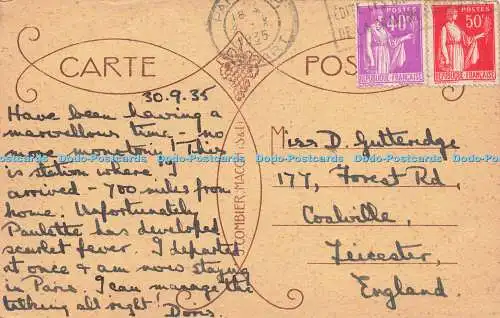 CARTE POSTALE
40c
POSTES
REPUBLIQUE FRANÇAISE
50c
POSTES
REPUBLIQUE FRANÇAISE
30.9.35
Have been having a
marvellous time - no
more monotony! This
is station where I
arrived - 700 miles from
home. Unfortunately
Paulette has developed
scarlet fever. I departed
at once & am now staying
in Paris. I can manage the
talking all right!
Doris
COMBIER MACON
Miss D. Gutteridge
177, Forest Rd,
Coalville,
Leicester,
England.
Dodo-Postcards Dodo-Postcards Dodo-Postcards